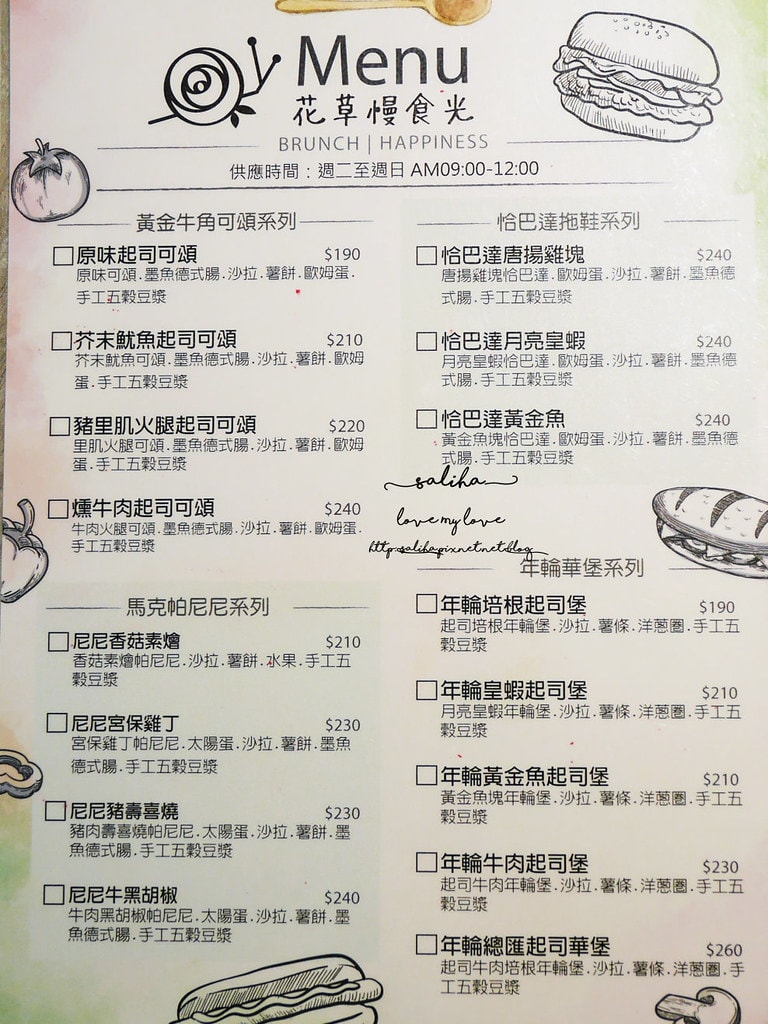 Menu
花草慢食光
BRUNCH | HAPPINESS
供應時間：週二至週日 AM09:00-12:00
黃金牛角可頌系列
□原味起司可頌 $190
原味可頌.墨魚德式腸.沙拉.薯餅.歐姆蛋.
手工五穀豆漿
□芥末魷魚起司可頌 $210
芥末魷魚可頌.墨魚德式腸.沙拉.薯餅.歐姆
蛋.手工五穀豆漿
□豬里肌火腿起司可頌 $220
里肌火腿可頌.墨魚德式腸.沙拉.薯餅.歐姆
蛋.手工五穀豆漿
□燻牛肉起司可頌 $240
牛肉火腿可頌.墨魚德式腸.沙拉.薯餅.歐姆蛋.
手工五穀豆漿
馬克帕尼尼系列
□尼尼香菇素燴 $210
香菇素燴帕尼尼.沙拉.薯餅.水果.手工五
穀豆漿
□尼尼宮保雞丁 $230
宮保雞丁帕尼尼.太陽蛋.沙拉.薯餅.墨魚
德式腸.手工五穀豆漿
□尼尼豬壽喜燒 $230
豬肉壽喜燒帕尼尼.太陽蛋.沙拉.薯餅.墨
魚德式腸.手工五穀豆漿
□尼尼牛黑胡椒 $240
牛肉黑胡椒帕尼尼.太陽蛋.沙拉.薯餅.墨
魚德式腸.手工五穀豆漿
恰巴達拖鞋系列
□恰巴達唐揚雞塊 $240
唐揚雞塊恰巴達.歐姆蛋.沙拉.薯餅.墨魚德
式腸.手工五穀豆漿
□恰巴達月亮皇蝦 $240
月亮皇蝦恰巴達.歐姆蛋.沙拉.薯餅.墨魚德
式腸.手工五穀豆漿
□恰巴達黃金魚 $240
黃金魚塊恰巴達.歐姆蛋.沙拉.薯餅.墨魚德
式腸.手工五穀豆漿
saliha
love my love
http:saliha.pixnet.net.blog
年輪華堡系列
□年輪培根起司堡 $190
起司培根年輪堡.沙拉.薯條.洋蔥圈.手工五
穀豆漿
□年輪皇蝦起司堡 $210
月亮皇蝦年輪堡.沙拉.薯條.洋蔥圈.手工五
穀豆漿
□年輪黃金魚起司堡 $210
黃金魚塊年輪堡.沙拉.薯條.洋蔥圈.手工五
穀豆漿
□年輪牛肉起司堡 $230
起司牛肉年輪堡.沙拉.薯條.洋蔥圈.手工五
穀豆漿
□年輪總匯起司華堡 $260
起司牛肉培根年輪堡.沙拉.薯條.洋蔥圈.手
工五穀豆漿